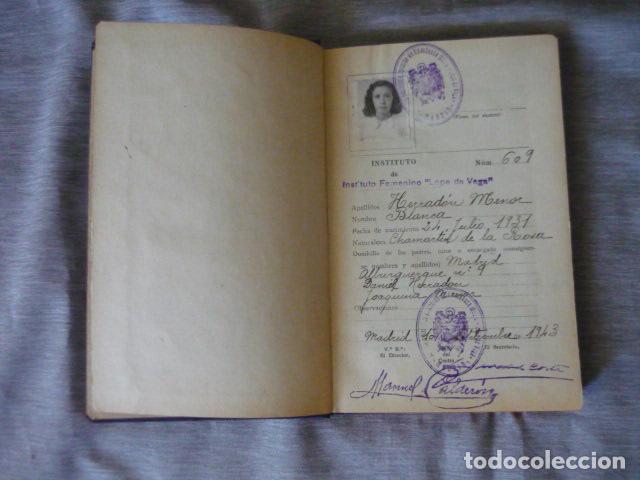 (Firma del alumno)
INSTITUTO Núm. 609
de
Instituto Femenino "Lope de Vega"
Apellidos Herradón Menor
Nombre Blanca
Fecha de nacimiento 24 Julio 1931
Naturaleza Chamartín de la Rosa
Domicilio de los padres, tutor o encargado
nombres y apellidos) Madrid
Alburquerque nº 9
Daniel Herradón
Joaquina
Observaciones
Madrid 30 Septiembre 1943
V.º B.º: El Secretario,
El Director, del Centro
Manuel Calderón
todocoleccion.net